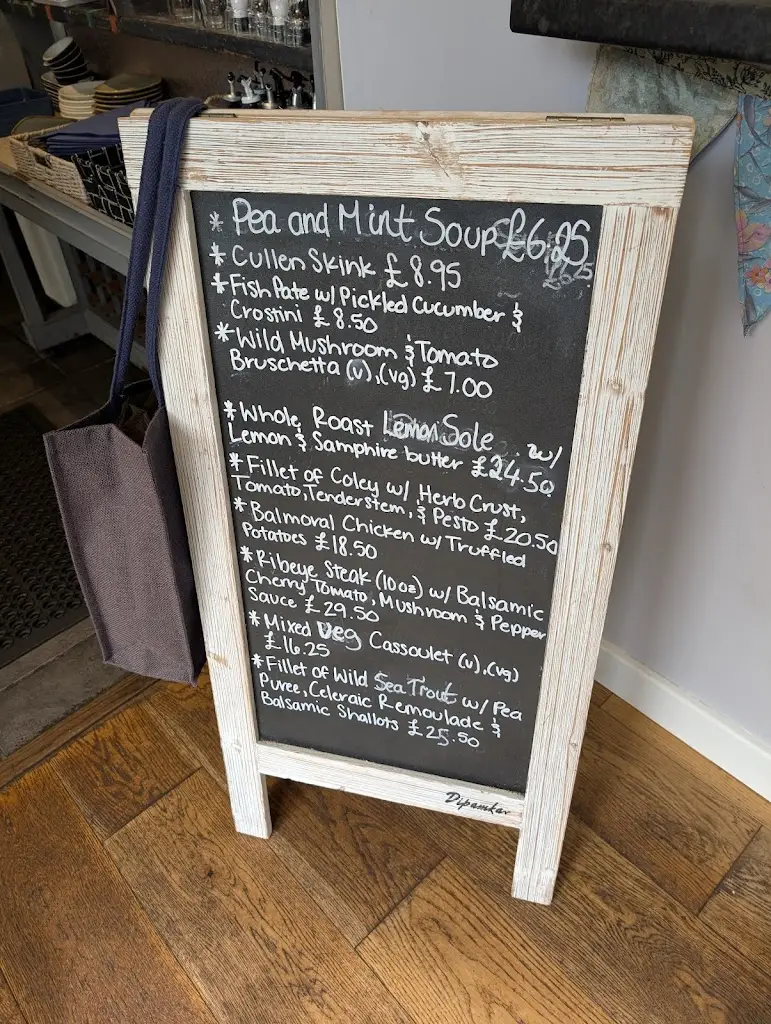 * Pea and Mint Soup £6.25
£6.25
* Cullen Skink £8.95
* Fish Pate w/ Pickled Cucumber &
Crostini £8.50
* Wild Mushroom & Tomato
Bruschetta (v), (vg) £7.00
* Whole Roast Lemon Sole w/
Lemon & Samphire butter £24.50
* Fillet of Coley w/ Herb Crust,
Tomato, Tenderstem, & Pesto £20.50
* Balmoral Chicken w/ Truffled
Potatoes £18.50
* Ribeye Steak (10oz) w/ Balsamic
Cherry Tomato, Mushroom & Pepper
Sauce £29.50
* Mixed Veg Cassoulet (v), (vg)
£16.25
* Fillet of Wild Sea Trout w/ Pea
Puree, Celeraic Remoulade &
Balsamic Shallots £25.50
Dipamkar